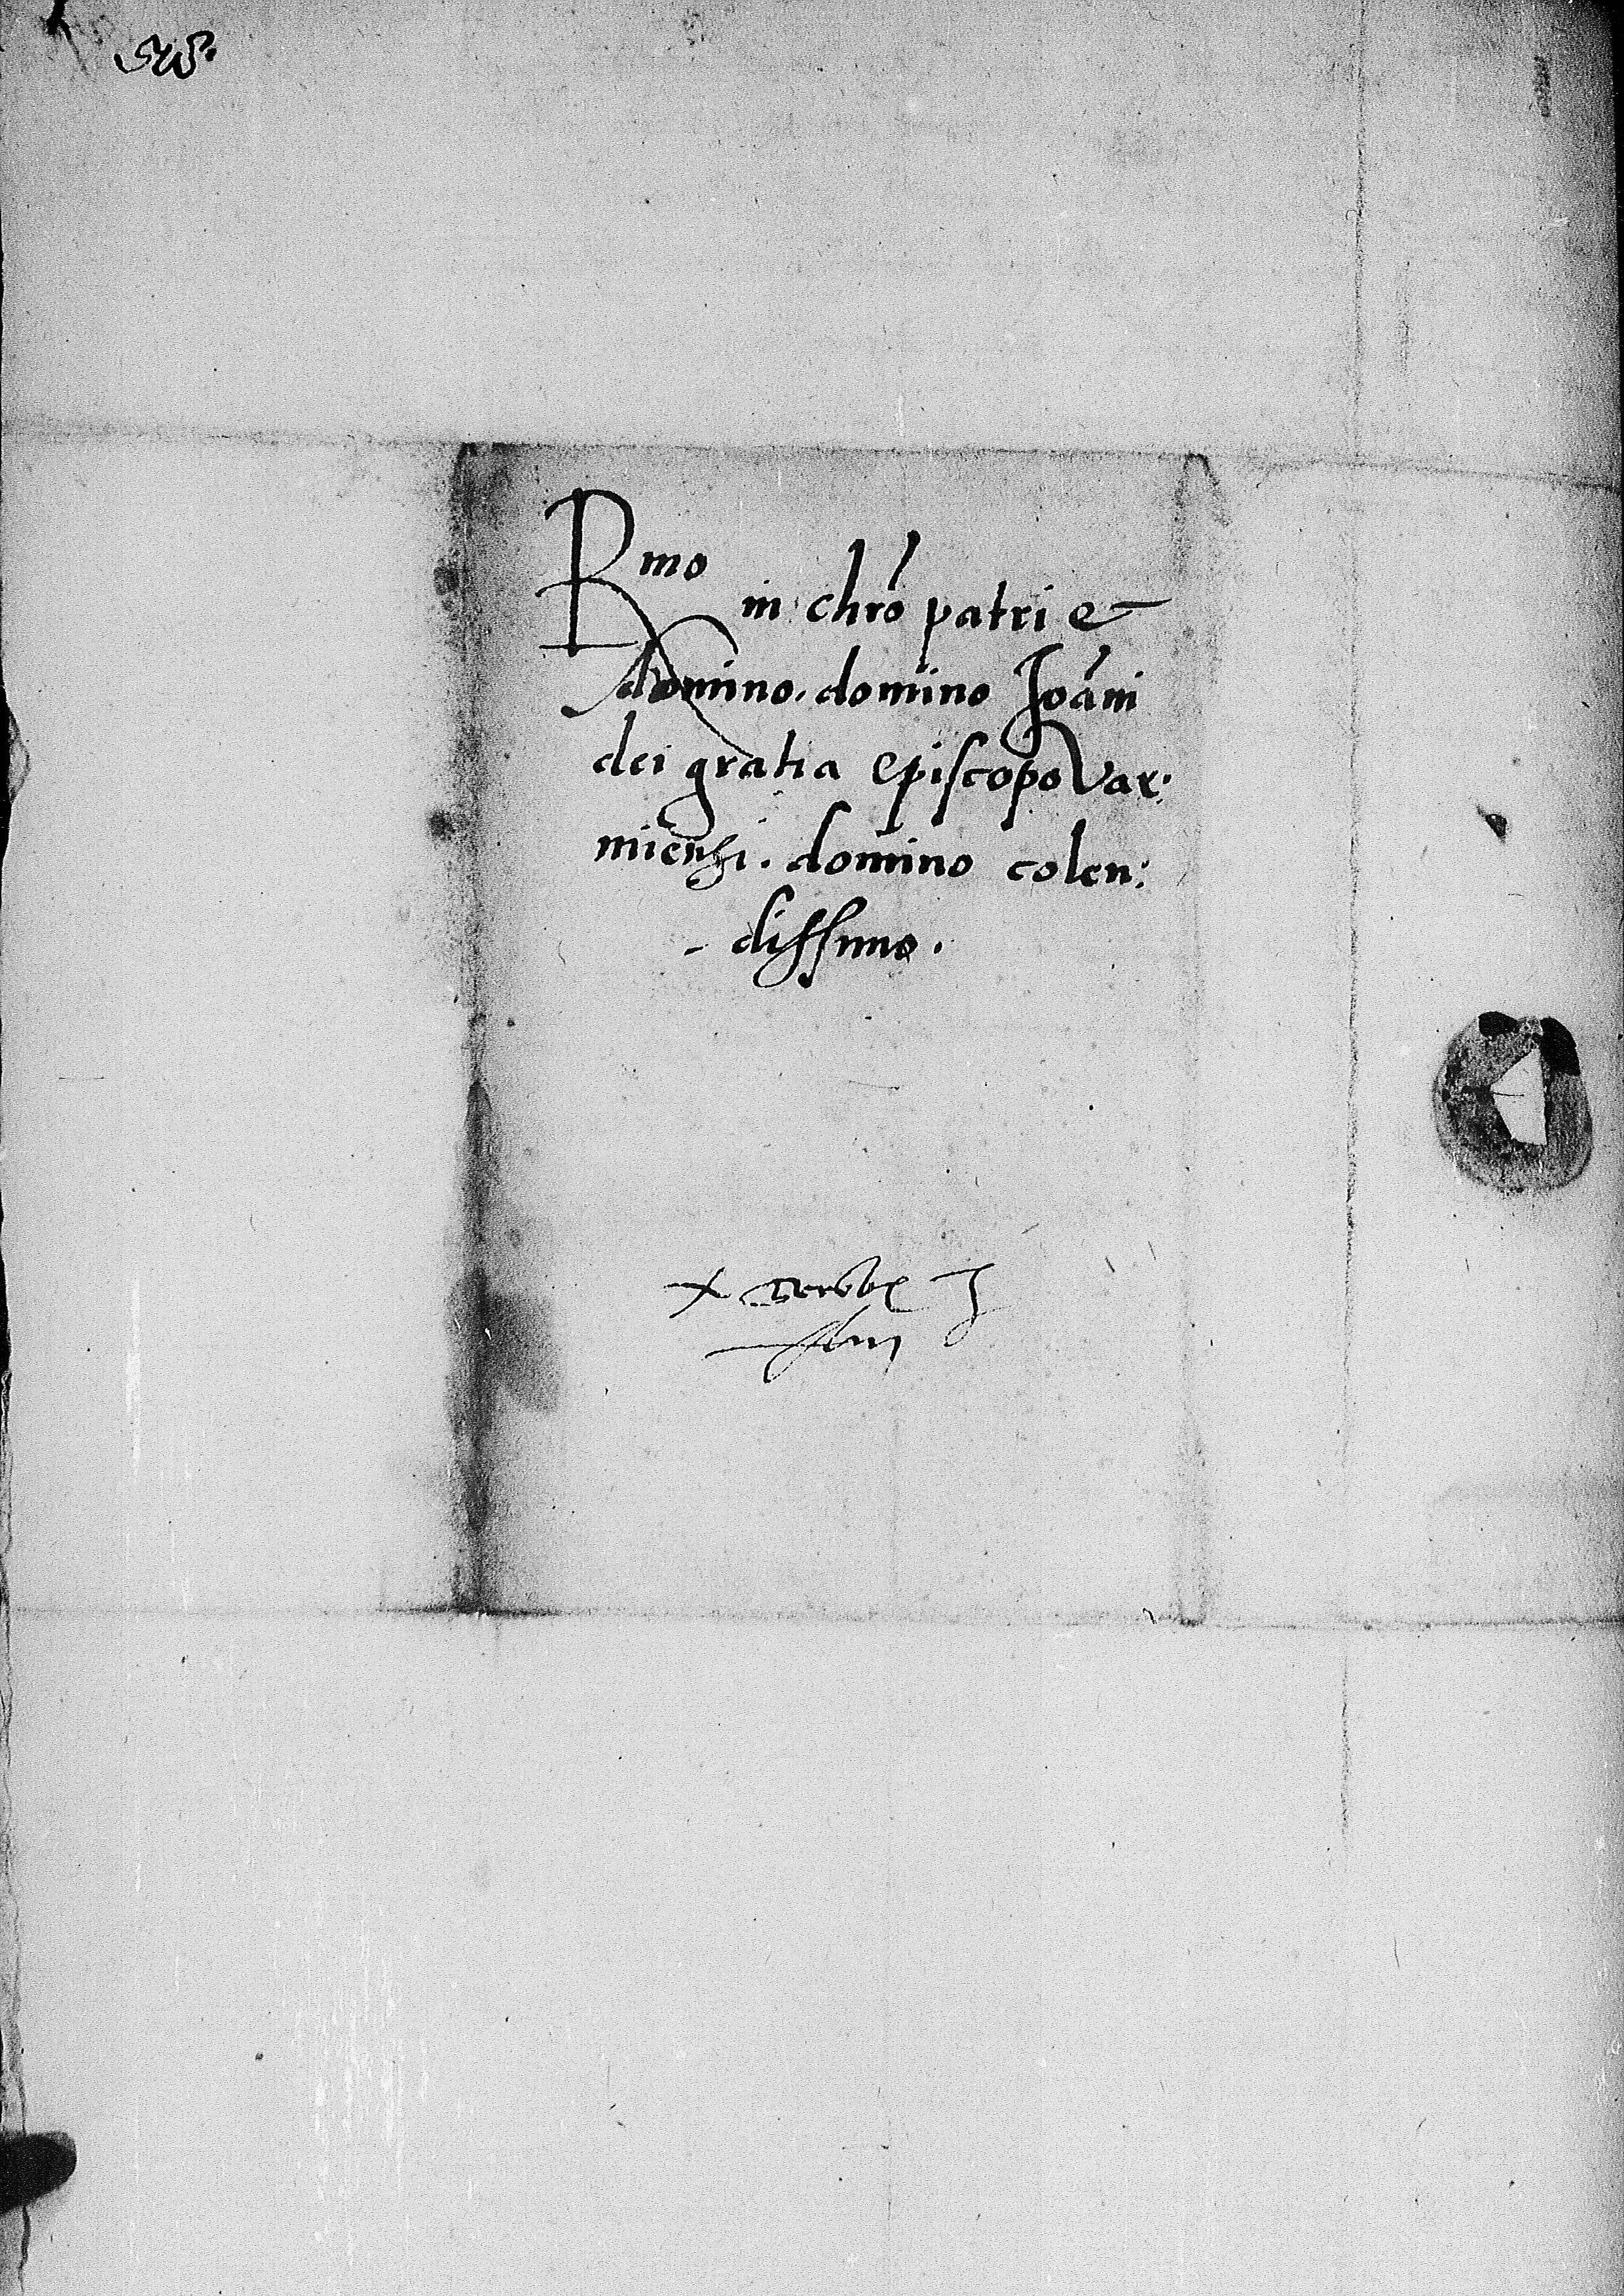 Rmo in chro patri et
domino. domino Joāni
dei gratia Episcopo Var:
miensi. domino colen:
dissimo.